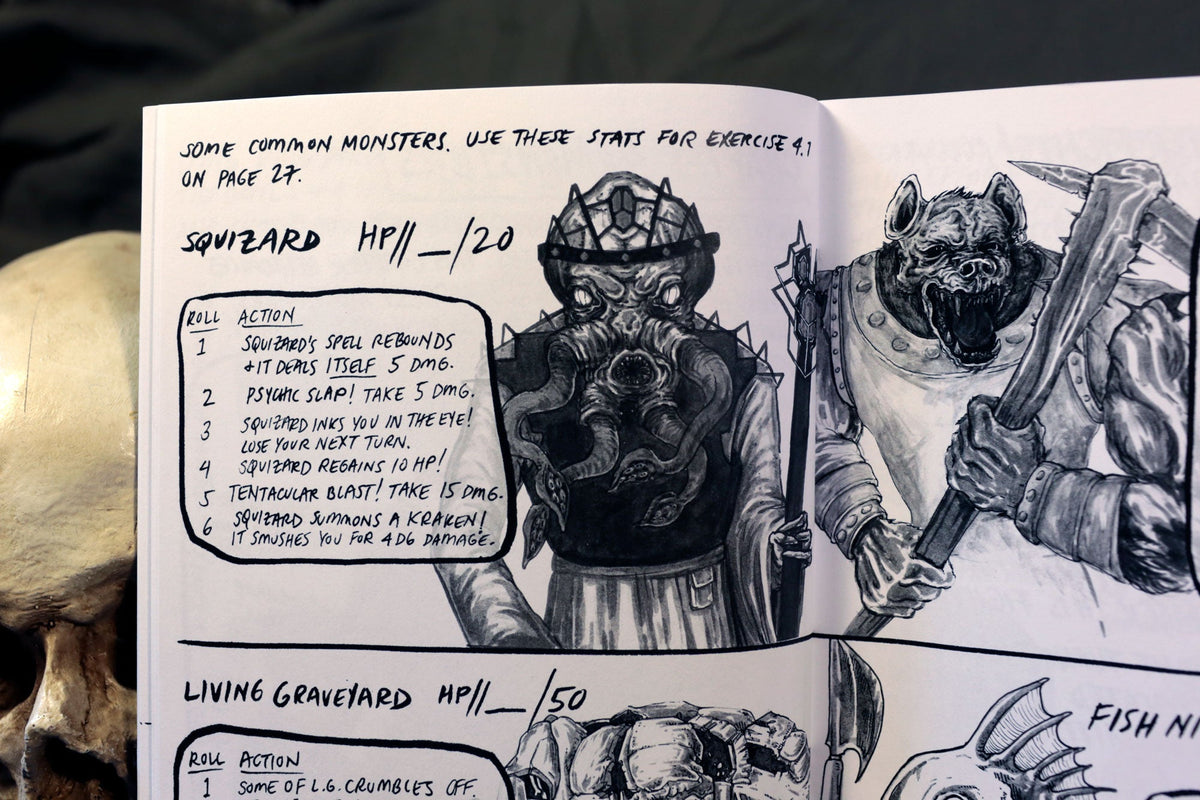 SOME COMMON MONSTERS. USE THESE STATS FOR EXERCISE 4.1
ON PAGE 27.
SQUIZARD HP//_/20
ROLL ACTION
1 SQUIZARD'S SPELL REBOUNDS
& IT DEALS ITSELF 5 DMG.
2 PSYCHIC SLAP! TAKE 5 DMG.
3 SQUIZARD INKS YOU IN THE EYE!
LOSE YOUR NEXT TURN.
4 SQUIZARD REGAINS 10 HP!
5 TENTACULAR BLAST! TAKE 15 DMG.
6 SQUIZARD SUMMONS A KRAKEN!
IT SMUSHES YOU FOR 4D6 DAMAGE.
LIVING GRAVEYARD HP//_/50
ROLL ACTION
1 SOME OF L.G. CRUMBLES OFF.
FISH NI